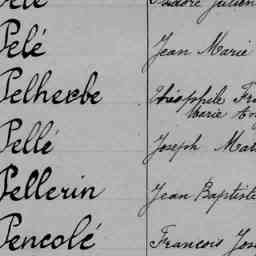 Isidore Julien
Pelé Jean Marie
Pelherbe Théophile Fra
Marie Eug
Pellé Joseph Mat
Pellerin Jean Baptiste
Pencolé Francois Jos